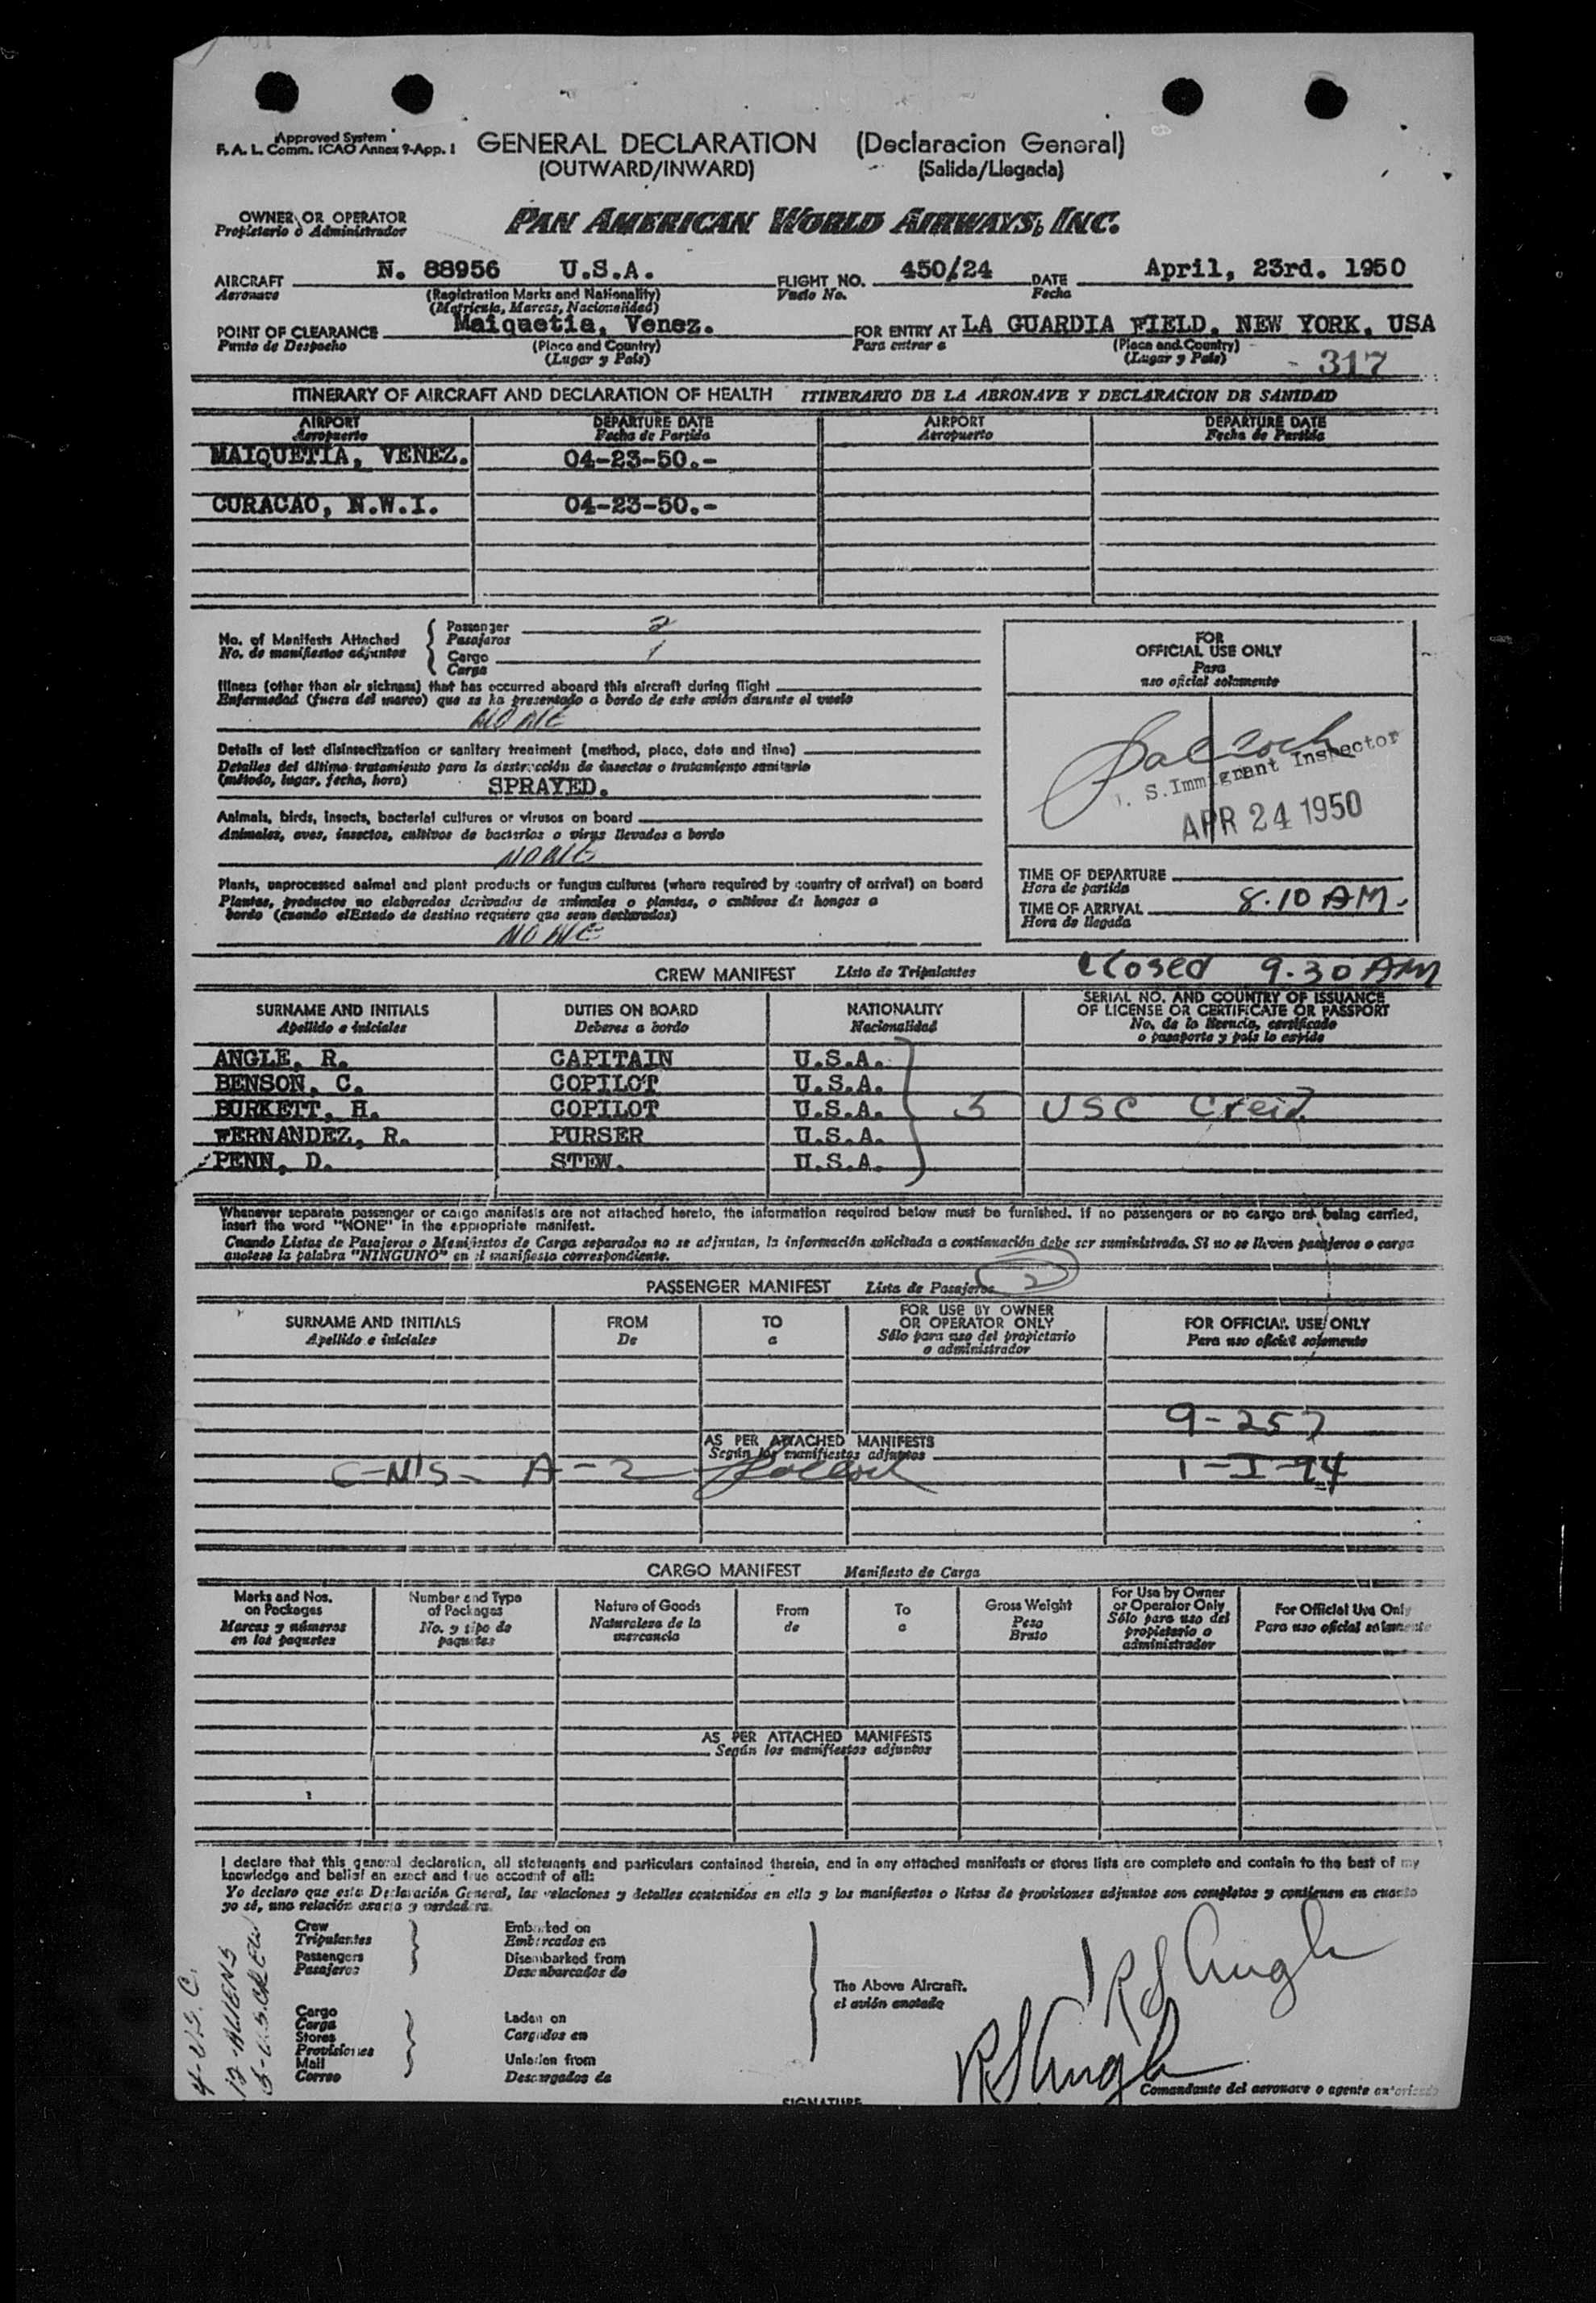 Approved System
F. A. L. Comm. ICAO Annex 9-App. 1
GENERAL DECLARATION (Declaracion General)
(OUTWARD/INWARD) (Salida/Llegada)
OWNER OR OPERATOR
Propietario ò Administrador
PAN AMERICAN WORLD AIRWAYS, INC.
AIRCRAFT N. 88956 U.S.A. FLIGHT NO. 450/24 DATE April, 23rd. 1950
Aeronave (Registration Marks and Nationality) Vuelo No. Fecha
(Matricula, Marcas, Nacionalidad)
POINT OF CLEARANCE Maiquetia, Venez. FOR ENTRY AT LA GUARDIA FIELD, NEW YORK, USA
Punto de Despacho (Place and Country) Para entrar a (Place and Country)
(Lugar y País) (Lugar y País) 317
ITINERARY OF AIRCRAFT AND DECLARATION OF HEALTH ITINERARIO DE LA AERONAVE Y DECLARACION DE SANIDAD
AIRPORT DEPARTURE DATE AIRPORT DEPARTURE DATE
Aeropuerto Fecha de Partida Aeropuerto Fecha de Partida
MAIQUETIA, VENEZ. 04-23-50.-
CURACAO, N.W.I. 04-23-50.-
No. of Manifests Attached
No. de manifiestos adjuntos
Passenger 2
Pasajeros
Cargo 1
Carga
Illness (other than air sickness) that has occurred aboard this aircraft during flight
Enfermedad (fuera del mareo) que se ha presentado a bordo de este avión durante el vuelo
NONE
Details of last disinsectization or sanitary treatment (method, place, date and time)
Detalles del último tratamiento para la destrucción de insectos o tratamiento sanitario
(método, lugar, fecha, hora) SPRAYED.
Animals, birds, insects, bacterial cultures or viruses on board
Animales, aves, insectos, cultivos de bacterias o virus llevados a bordo
NONE
Plants, unprocessed animal and plant products or fungus cultures (where required by country of arrival) on board
Plantas, productos no elaborados derivados de animales o plantas, o cultivos de hongos a
bordo (cuando el Estado de destino requiere que sean declarados)
NONE
FOR
OFFICIAL USE ONLY
Para
uso oficial solamente
. S. Immigrant Inspector
APR 24 1950
TIME OF DEPARTURE
Hora de partida
TIME OF ARRIVAL 8.10 AM.
Hora de llegada
Closed 9.30 AM
CREW MANIFEST Lista de Tripulantes
SURNAME AND INITIALS DUTIES ON BOARD NATIONALITY SERIAL NO. AND COUNTRY OF ISSUANCE
OF LICENSE OR CERTIFICATE OR PASSPORT
Apellido e iniciales Deberes a bordo Nacionalidad No. de la licencia, certificado
o pasaporte y país lo expide
ANGLE, R. CAPITAIN U.S.A.
BENSON, C. COPILOT U.S.A.
BURKETT, H. COPILOT U.S.A. 5 USC
FERNANDEZ, R. PURSER U.S.A.
PENN, D. STEW. U.S.A.
Whenever separate passenger or cargo manifests are not attached hereto, the information required below must be furnished. If no passengers or no cargo are being carried,
insert the word "NONE" in the appropriate manifest.
Cuando Listas de Pasajeros o Manifiestos de Carga separados no se adjuntan, la información solicitada a continuación debe ser suministrada. Si no se llevan pasajeros o carga
anótese la palabra "NINGUNO" en el manifiesto correspondiente.
PASSENGER MANIFEST Lista de Pasajeros 2
SURNAME AND INITIALS FROM TO FOR USE BY OWNER
OR OPERATOR ONLY FOR OFFICIAL USE ONLY
Apellido e iniciales De a Sólo para uso del propietario
o administrador Para uso oficial solamente
9-257
AS PER ATTACHED MANIFESTS
Según los manifiestos adjuntos
C-M'S- A-2 1-I-94
CARGO MANIFEST Manifiesto de Carga
Marks and Nos.
on Packages
Marcas y números
en los paquetes
Number and Type
of Packages
No. y tipo de
paquetes
Nature of Goods
Naturaleza de la
mercancía
From
de
To
a
Gross Weight
Peso
Bruto
For Use by Owner
or Operator Only
Sólo para uso del
propietario o
administrador
For Official Use Only
Para uso oficial solamente
AS PER ATTACHED MANIFESTS
Según los manifiestos adjuntos
I declare that this general declaration, all statements and particulars contained therein, and in any attached manifests or stores lists are complete and contain to the best of my
knowledge and belief an exact and true account of all:
Yo declaro que esta Declaración General, las relaciones y detalles contenidos en ella y los manifiestos o listas de provisiones adjuntos son completos y contienen en cuanto
yo sé, una relación exacta y verdadera.
Crew Embarked on
Tripulantes Embarcados en
Passengers Disembarked from
Pasajeros Desembarcados de
The Above Aircraft.
el avión anotado
Cargo Laden on
Carga Cargados en
Stores
Provisiones
Mail Unladen from
Correo Descargados de
4-U.S.C.
12-ALIENS
5-U.S.CREW
SIGNATURE
Comandante del aeronave o agente autorizado